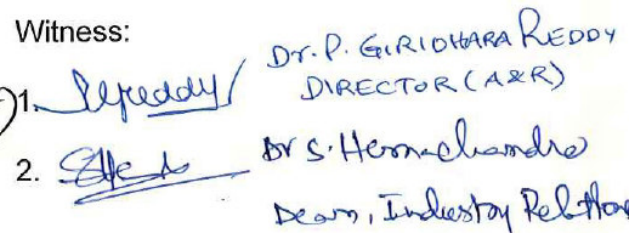 Witness:
Dr. P. GIRIDHARA REDDY
1. Reddy
DIRECTOR (A&R)
2. Dr S. Hemachandra
Dean, Industry Relations